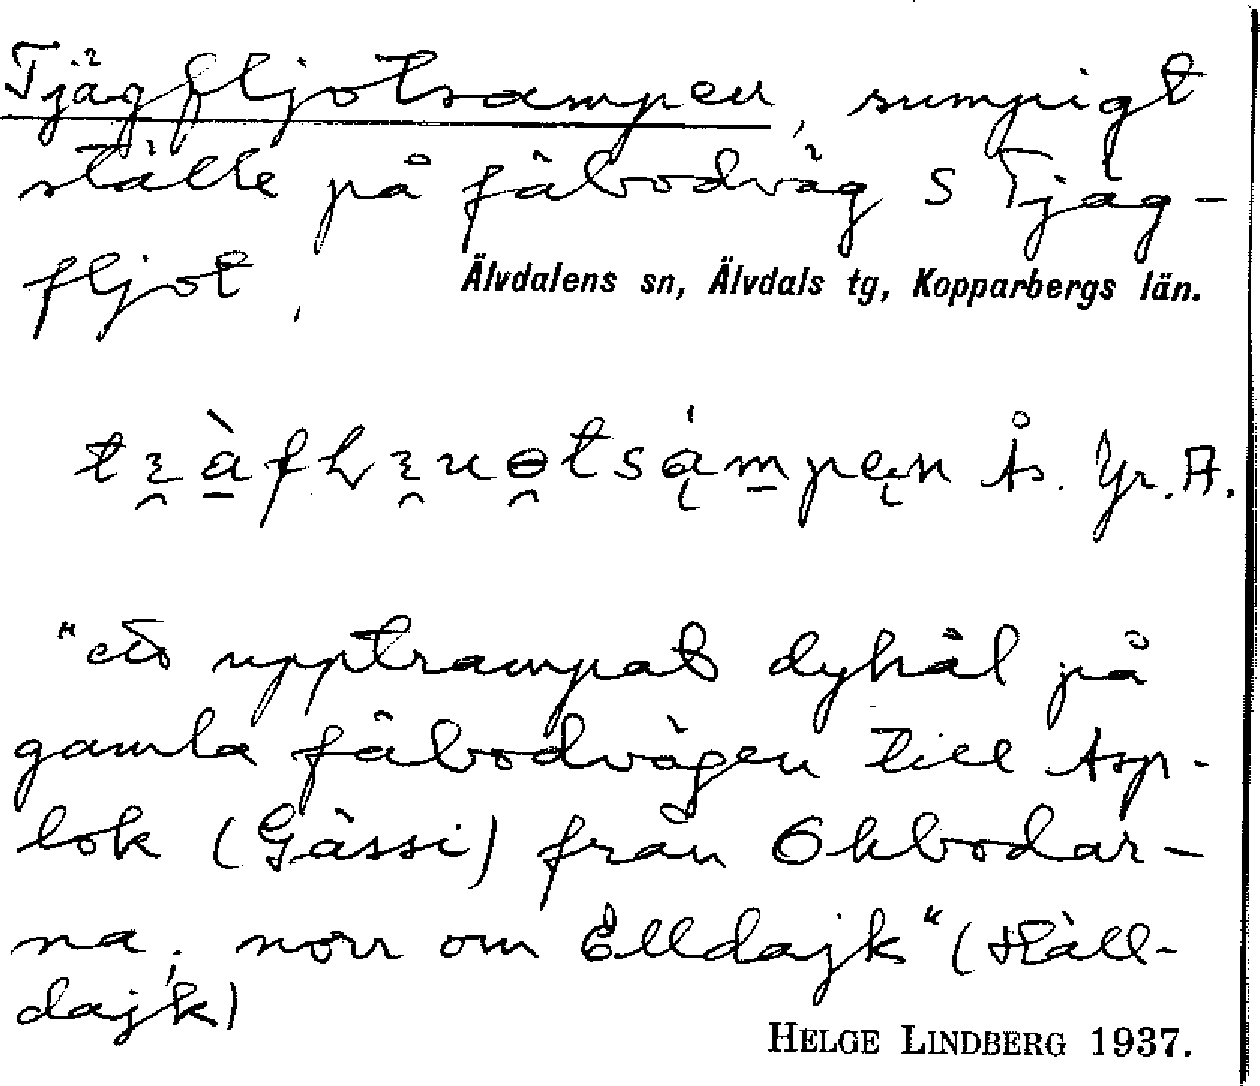 Tjägfljotsampen, sumpigt
ställe på fäbodväg S Tjäg-
fljot,
Älvdalens sn, Älvdals tg, Kopparbergs län.
Ås. Yr. A.
"ett upptrampat dyhål på
gamla fäbodvägen till Asp-
lok (Gässi) från Okbodar-
na, norr om Elldajk" (Häll-
dajk)
HELGE LINDBERG 1937.